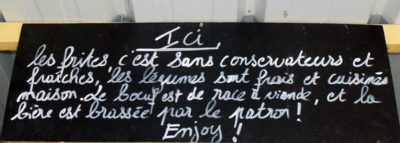 Ici
les frites, c'est sans conservateurs et
fraîches, les légumes sont frais et cuisinés
maison. Le bœuf est de race à viande, et la
bière est brassée par le patron !
Enjoy !